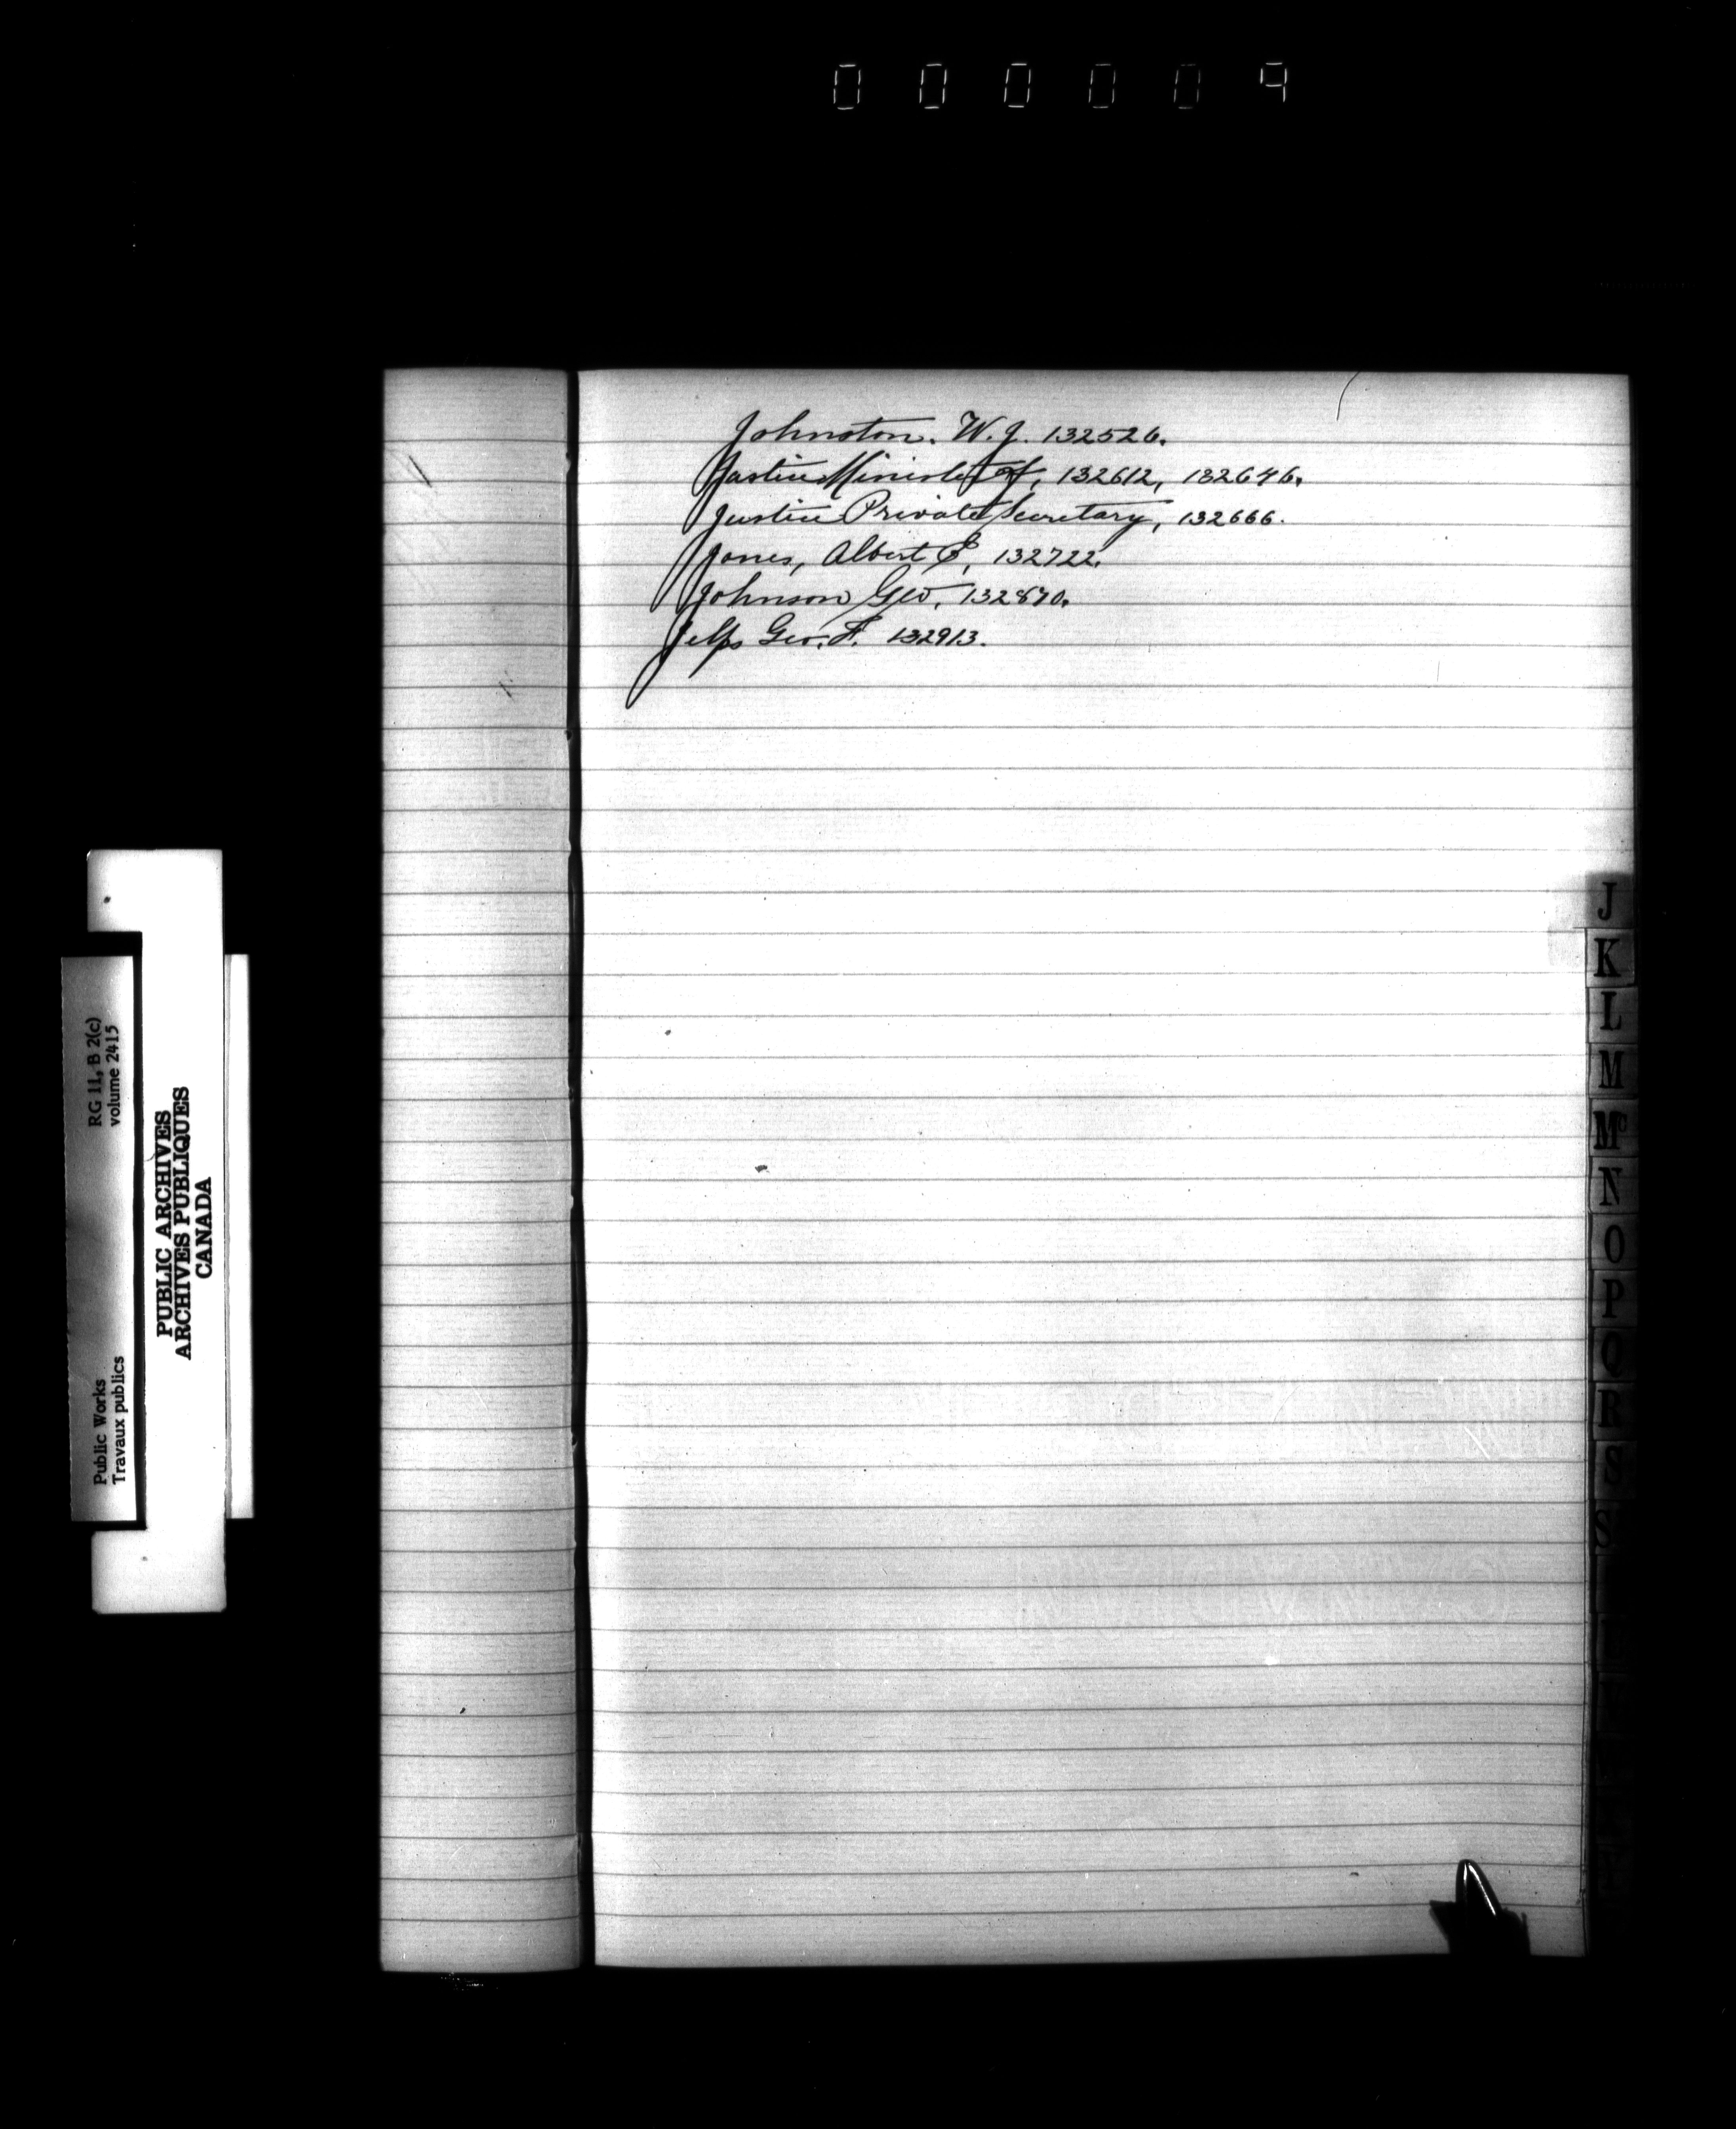 000009
Johnston. W. J. 132526.
Justice Minister of, 132612, 132646.
Justice Private Secretary, 132666.
Jones, Albert E, 132722.
Johnson Geo. 132870.
Jelfs Geo. F. 132913.
RG 11, B 2(c)
volume 2415
Public Works
Travaux publics
PUBLIC ARCHIVES
ARCHIVES PUBLIQUES
CANADA
J
K
L
M
Mc
N
O
P
Q
R
S
S